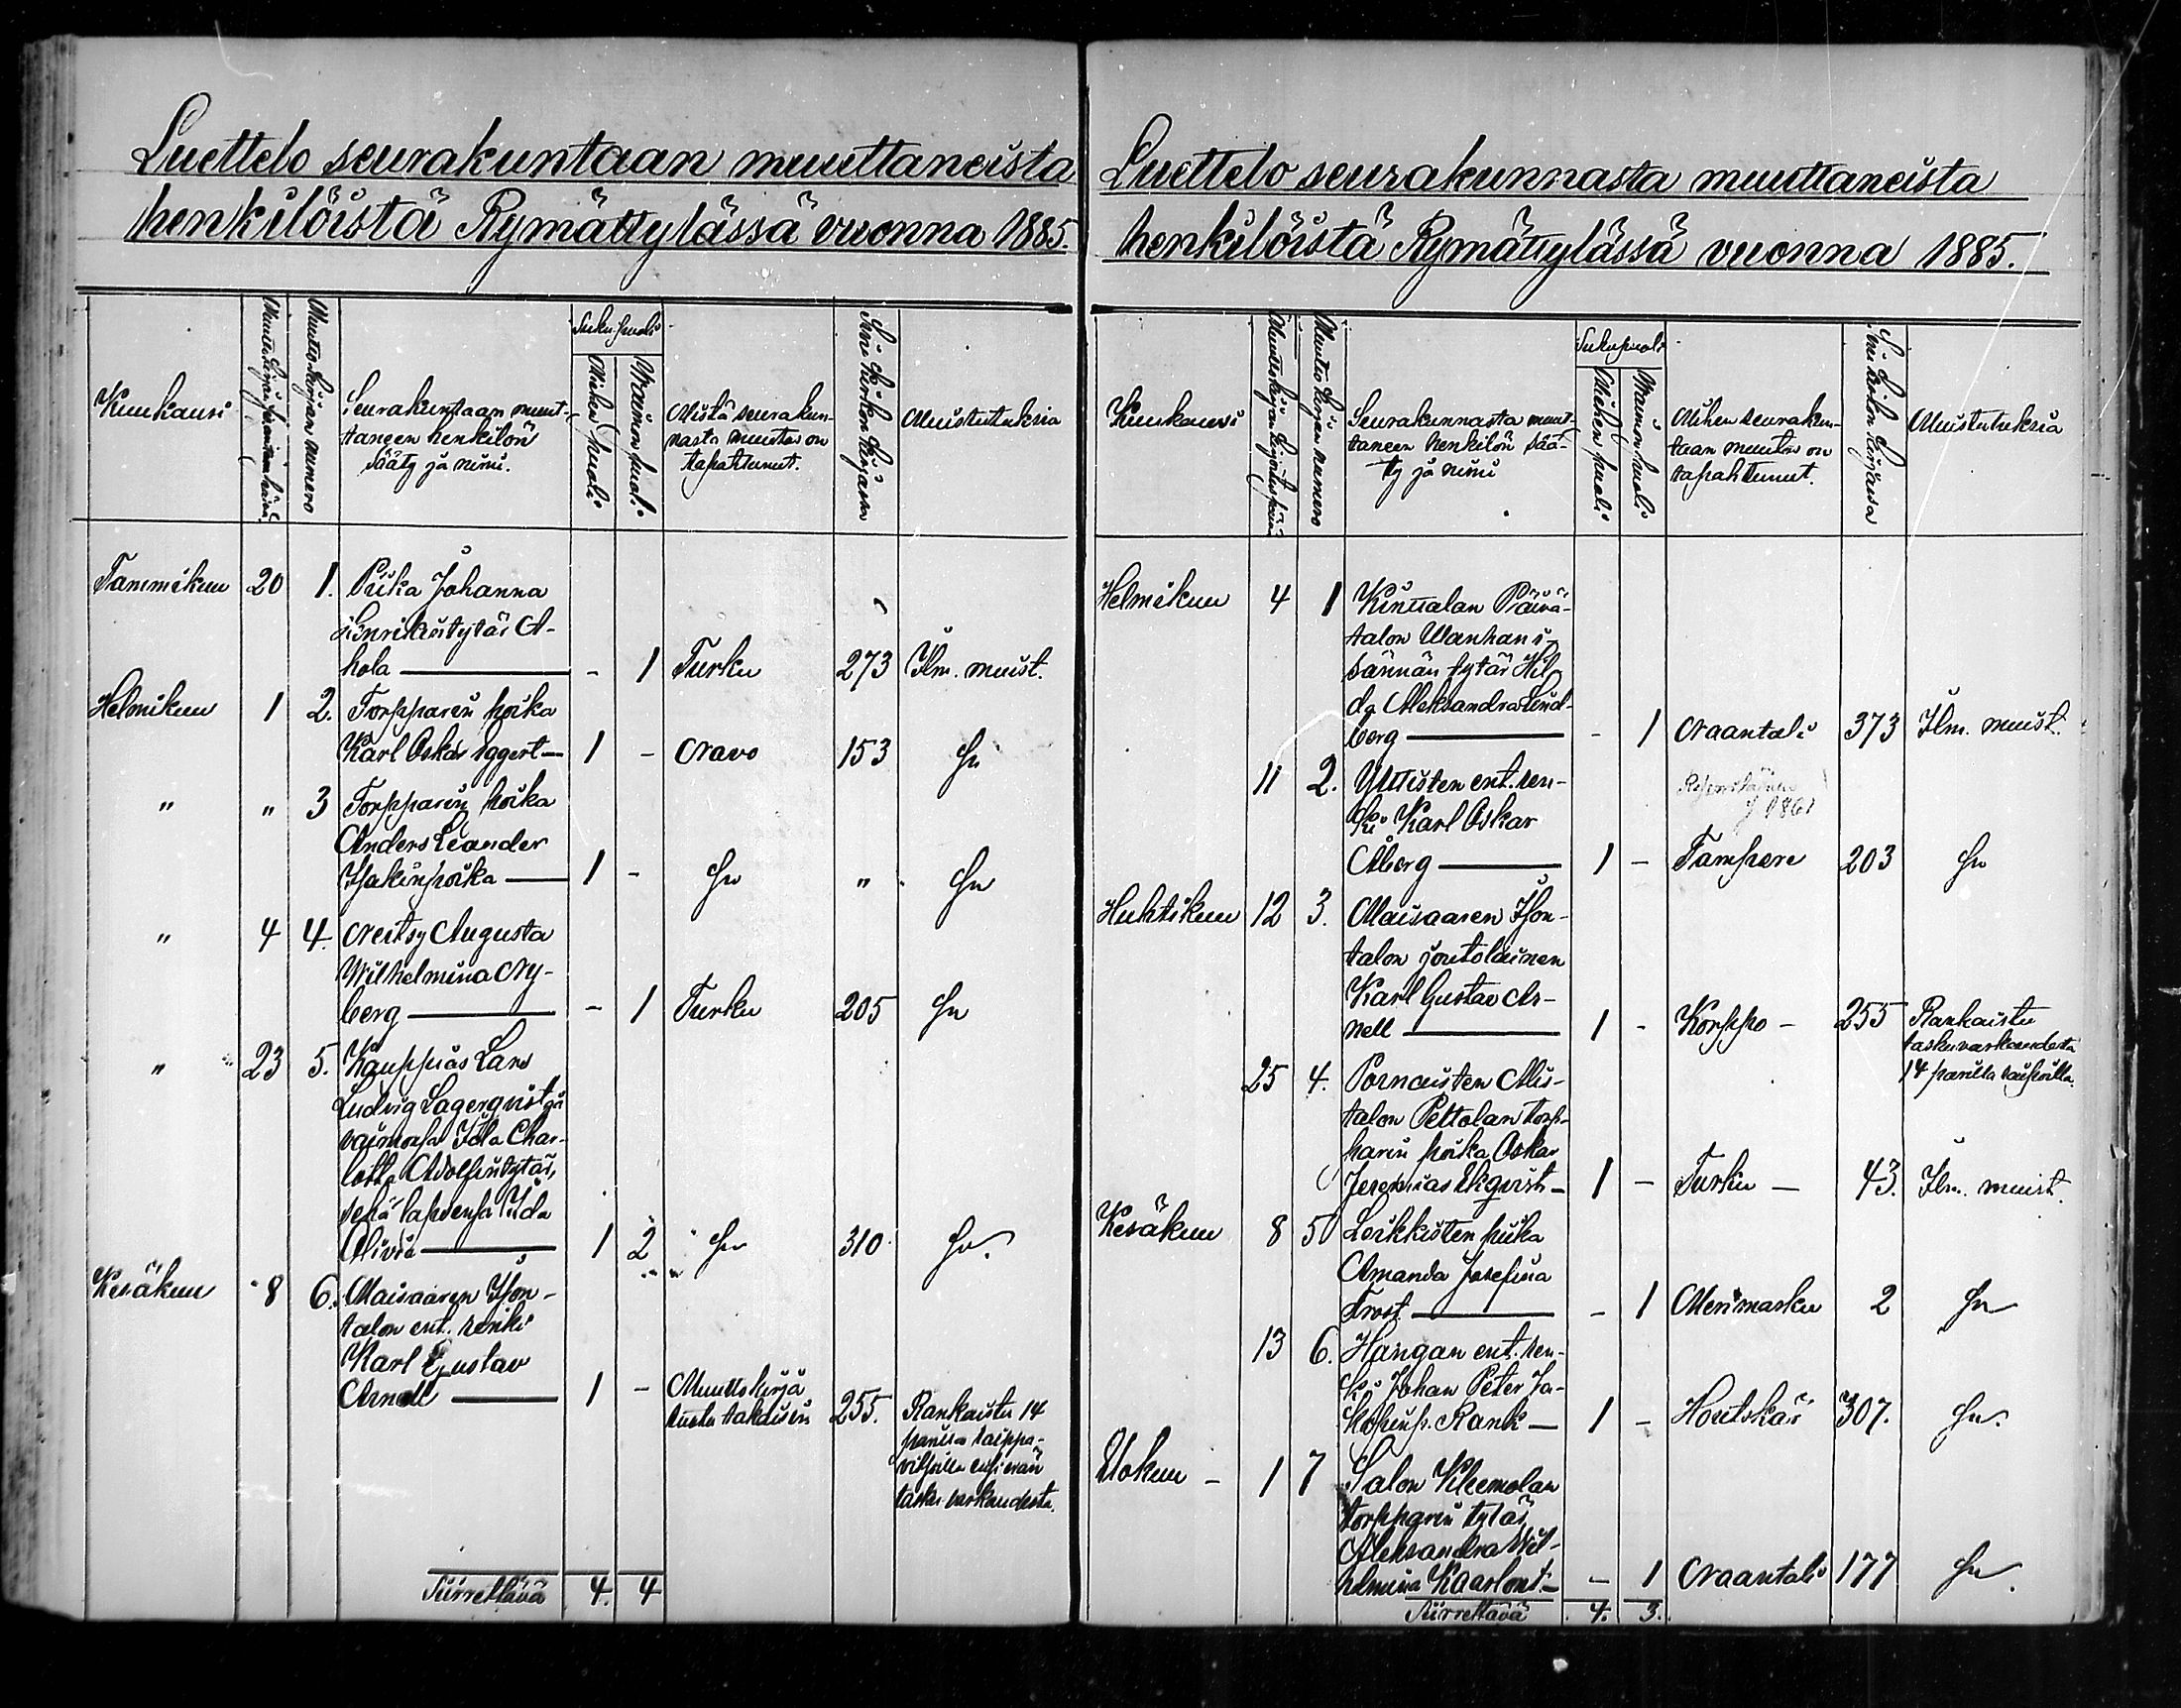 Luettelo seurakuntaan muuttaneista
henkilöistä Rymättylässä vuonna 1885.
Kuukausi
Muuttokirjan numero
Seurakuntaan muut-
taneen henkilön
sääty ja nimi.
Sukupuoli
Miehenpuoli
Waimonpuoli
Mistä seurakun-
nasta muutto on
tapahtunut.
Sivu kirkon kirjassa
Muistutuksia
Tammikuu 20 1. Piika Johanna
Henrikintytär A-
hola — - 1 Turku 273 Ilm. muist.
Helmikuu 1 2. Torpparin poika
Karl Oskar Eggert — 1 - Navo 153 Sn
" " 3 Torpparin poika
Anders Leander
Isakinpoika — 1 - Sn " Sn
" 4 4. Neitsy Augusta
Wilhelmina Ny-
berg — - 1 Turku 205 Sn
" 23 5. Kauppias Lars
Ludvig Lagerqvist ja
vaimonsa Ida Char-
lotta Adolfintytär,
sekä lapsensa Ida
Olivia — 1 2 Sn 310 Sn.
Kesäkuu 8 6. Maisaaren Ison-
talon ent. renki
Karl Gustav
Arnell — 1 - Muuttokirja
tuotu takaisin 255. Rankaistu 14
parilla raippa-
vitsoilla ensi erän
taskuvarkaudesta.
Siirrettävä 4. 4
Luettelo seurakunnasta muuttaneista
henkilöistä Rymättylässä vuonna 1885.
Kuukausi
Muuttokirjan numero
Seurakunnasta muut-
taneen henkilön sää-
ty ja nimi
Sukupuoli
Miehenpuoli
Waimonpuoli
Mihen seurakun-
taan muutto on
tapahtunut.
Sivu kirkon kirjassa
Muistutuksia
Helmikuu 4 1 Kintialan
talon Wanhan i-
sännän tytär Hil-
da Aleksandra Lind-
berg — - 1 Naantali 373 Ilm. muist.
11 2. Ylttisten ent. ren-
ki Karl Oskar
Åberg — 1 - Tampere 203 Sn
1861
Huhtikuu 12 3. Maisaaren Ison-
talon joutolainen
Karl Gustav Ar-
nell — 1 - Korppo - 255 Rankaistu
taskuvarkaudesta
14 parilla raipoilla.
25 4. Pornaisten Alis-
talon Pettolan torp-
parin poika Oskar
Jeremias Ekqvist — 1 - Turku — 43. Ilm. muist.
Kesäkuu 8 5 Leikkisten piika
Amanda Josefina
Frost — - 1 Merimasku 2 Sn
13 6. Hangan ent. ren-
ki Johan Peter Ja-
kopinp. Rank — 1 - Houtskär 307. Sn.
Elokuu - 1 7 Salon Kleemolan
torpparin tytär
Aleksandra Wil-
helmina Kaarlont — - 1 Naantali 177 Sn.
Siirrettävä 4. 3.